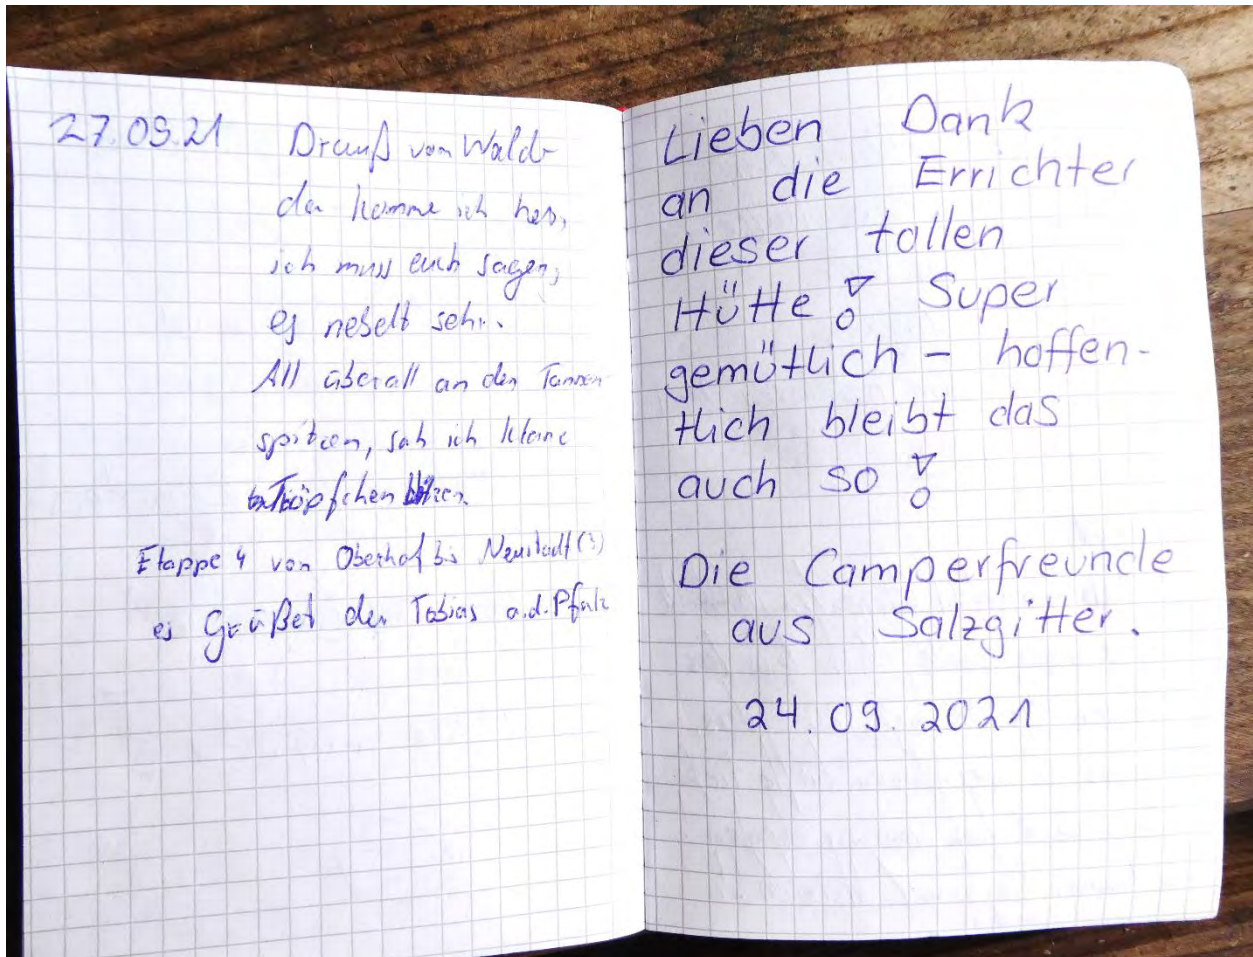 27.09.21 Drauß vom Walde
da komme ich her,
ich muss euch sagen,
es nebelt sehr.
All überall an den Tannen
spitzen, sah ich kleine
Tröpfchen blitzen.
Etappe 4 von Oberhof bis Neustadt (?)
es Grüßet der Tobias a.d. Pfalz
Lieben Dank
an die Errichter
dieser tollen
Hütte! Super
gemütlich - hoffen-
tlich bleibt das
auch so!
Die Camperfreunde
aus Salzgitter.
24.09.2021